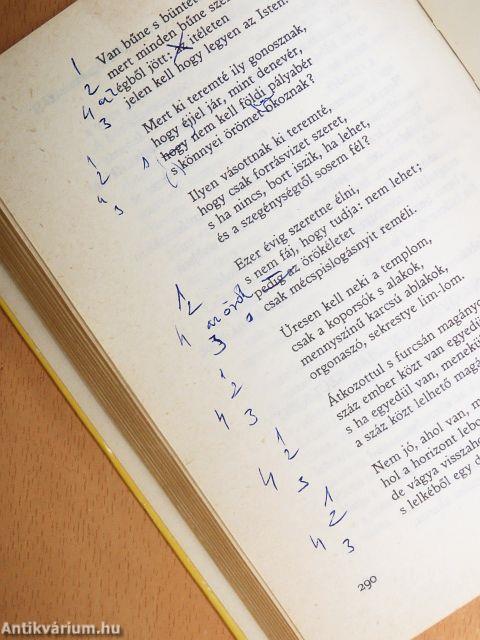 Van bűne s büntet
mert minden bűne sze
égből jött: itéleten
jelen kell hogy legyen az Isten.
Mert ki teremté ily gonosznak,
hogy éjjel jár, mint denevér,
hogy nem kell földi pályabér
s könnyei örömet okoznak?
Ilyen vásottnak ki teremté,
hogy csak forrásvizet szeret,
s ha nincs, bort iszik, ha lehet,
és a szegénységtől sosem fél?
Ezer évig szeretne élni,
s nem fáj, hogy tudja: nem lehet;
pedig az örökéletet
csak mécspislogásnyit reméli.
Üresen kell neki a templom,
csak a koporsók s alakok,
mennyszínű karcsú ablakok,
orgonaszó, sekrestye lim-lom.
Átkozottul s furcsán magányo
száz ember közt van egyedü
s ha egyedül van, menekü
a száz közt lelhető magá
Nem jó, ahol van, m
hol a horizont lebo
de vágya visszaho
s lelkéből egy d
1
2
4 az
3
1
2
4
3
1
1
2
4
3
1
2
4 3
1
2
4 3
1
2
4 3
290
Antikvárium.hu